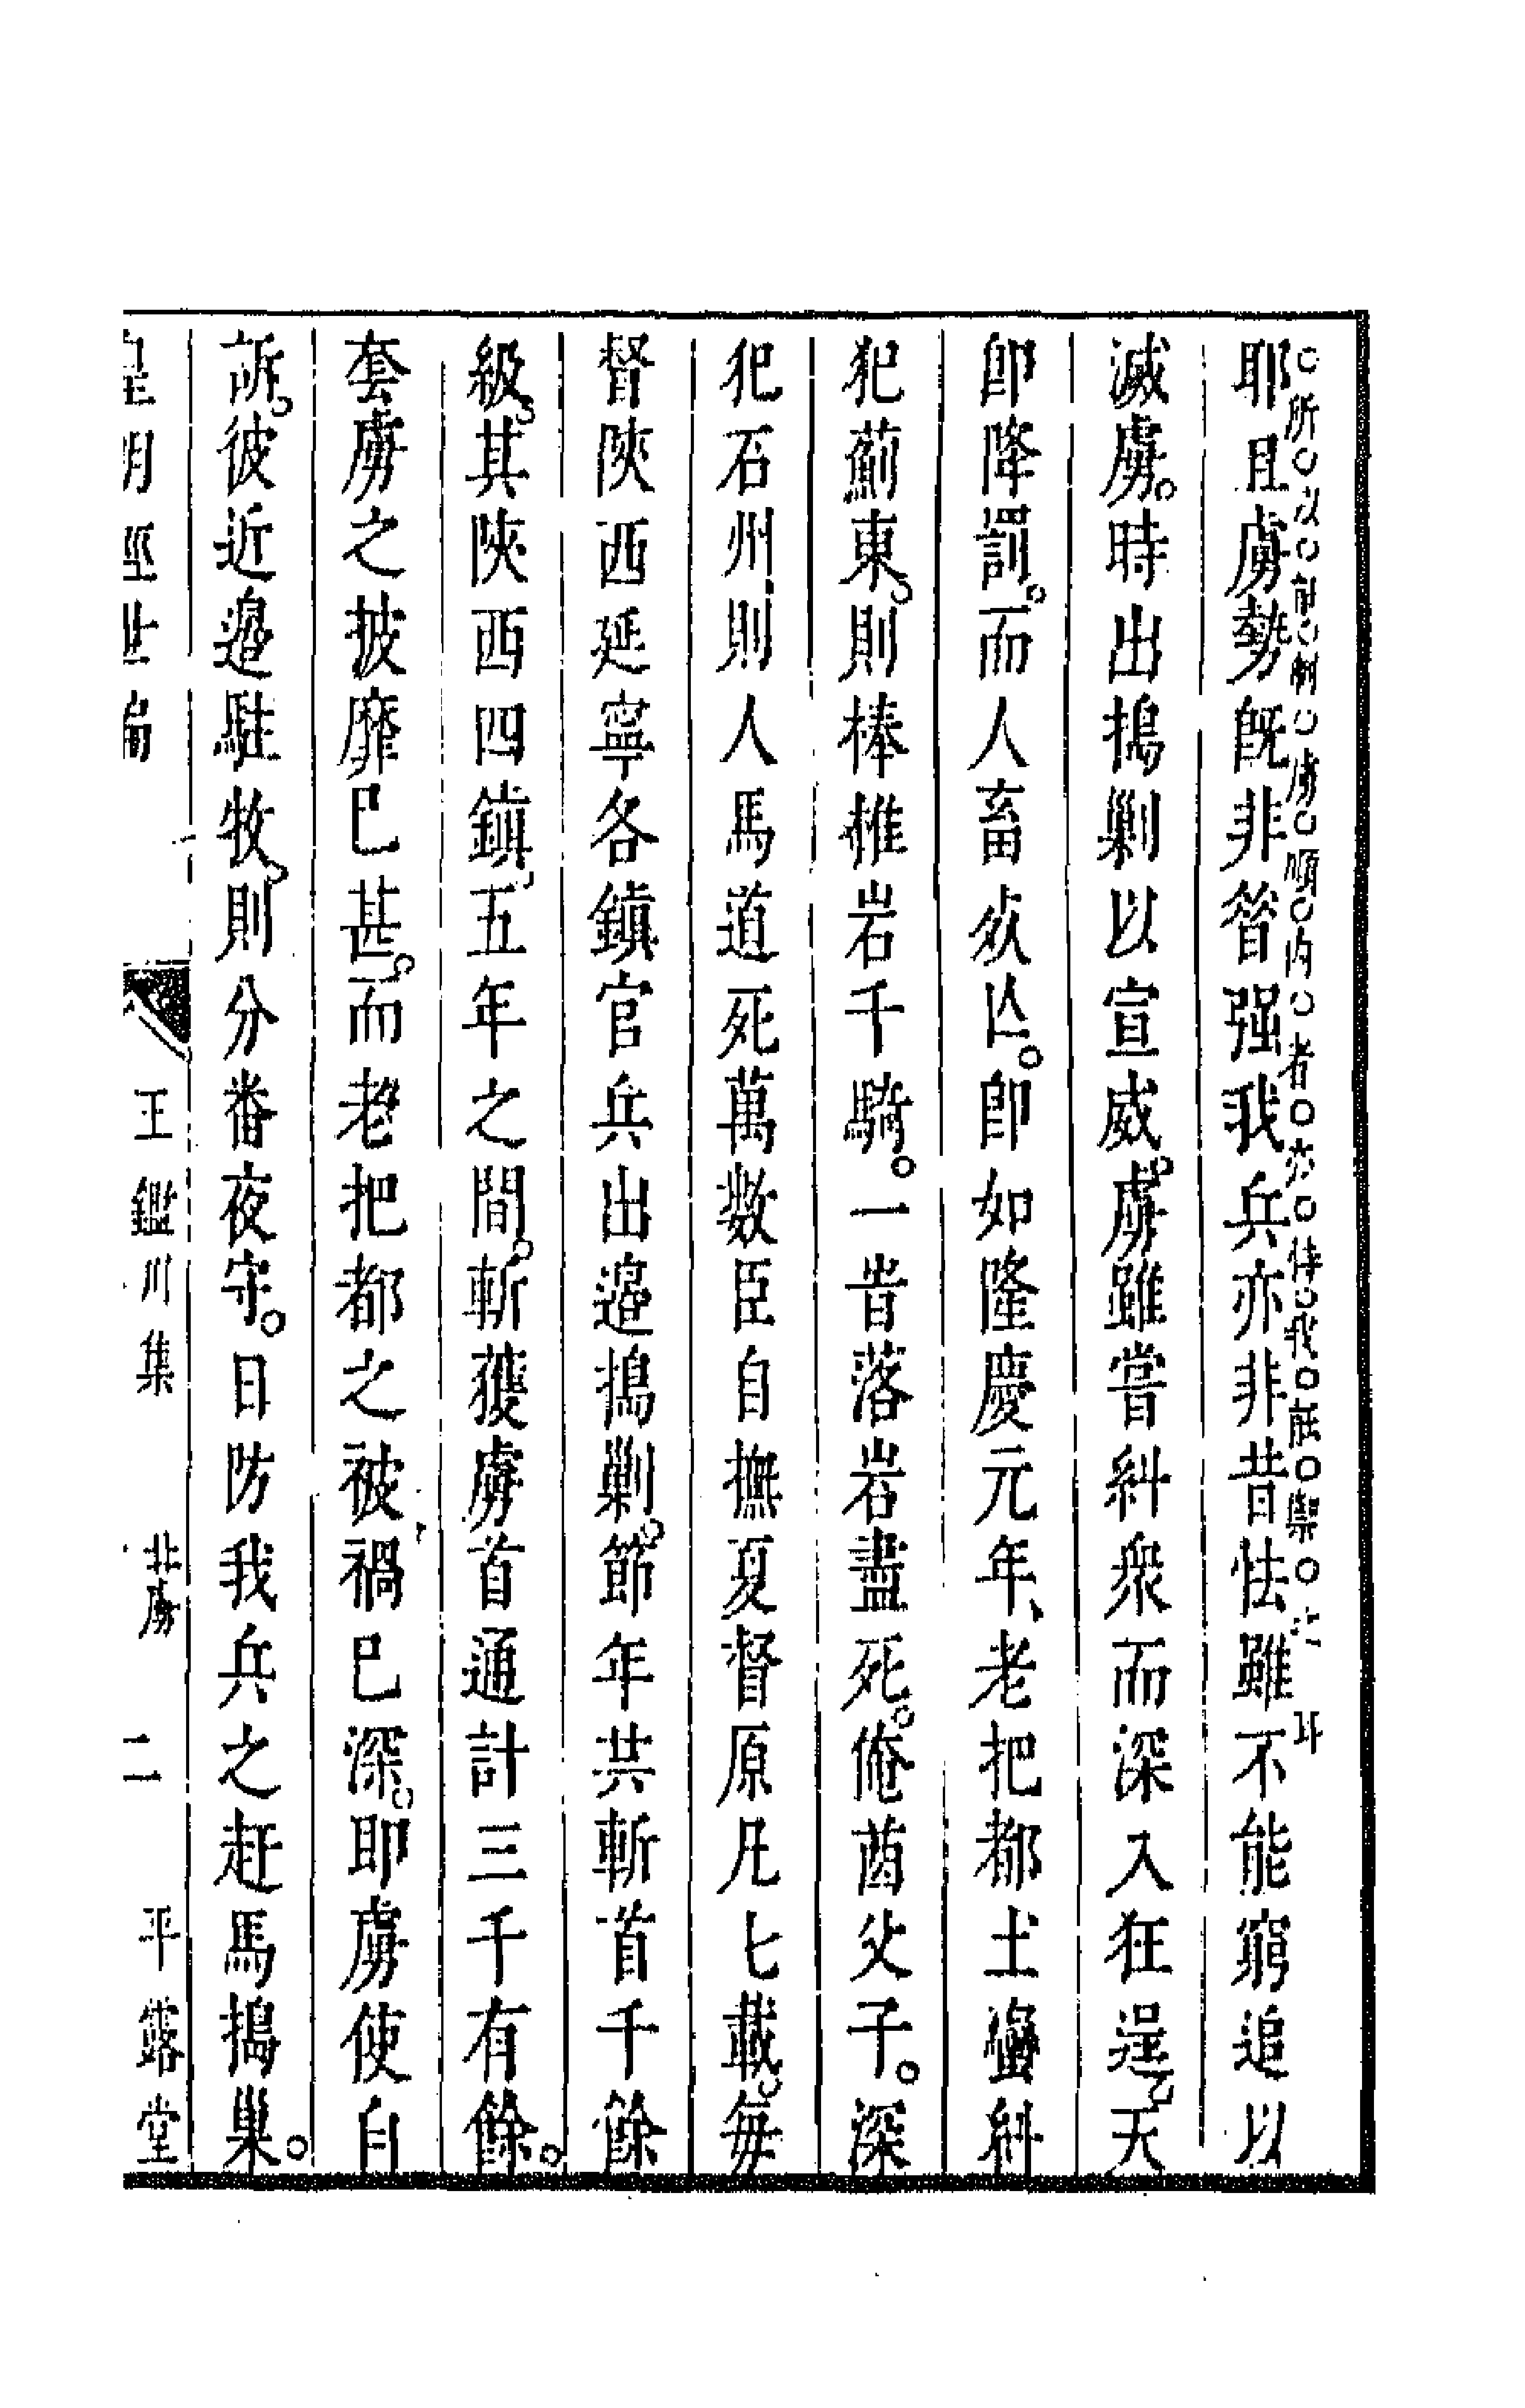 所以能制虜順內者亦恃我能禦之耳
耶且虜勢既非昝强我兵亦非昔怯雖不能窮追以
滅虜。時出搗剿以宣威。虜雖嘗糾衆而深入狂逞天
卽降罰。而人畜死亾。卽如隆慶元年、老把都土蠻糾
犯薊東。則棒椎岩千騎。一旹落岩盡死。俺酋父子。深
犯石州、則人馬道死萬數臣自撫夏督原凡七載。每
督陝西延寧各鎮官兵出邉搗剿。節年共斬首千餘
級。其陝西四鎮。五年之間。斬獲虜首通計三千有餘。
套虜之披靡巳甚。而老把都之被禍巳深。卽虜使自
訴。彼近邉駐牧。則分番夜守。日防我兵之赶馬搗巢。
皇明經世編 王鑑川集 北虜 二 平露堂